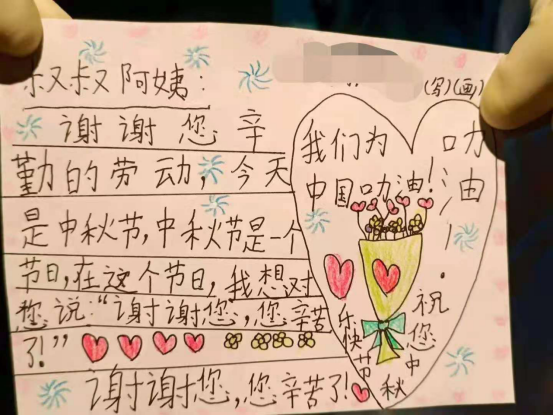 叔叔阿姨：
(写)(画)
谢谢您辛
勤的劳动，今天
是中秋节，中秋节是一个
节日，在这个节日，我想对
您说：“谢谢您，您辛苦
了！”
谢谢您，您辛苦了！
我们为
中国叻油！
叻油！
祝您中秋节快乐